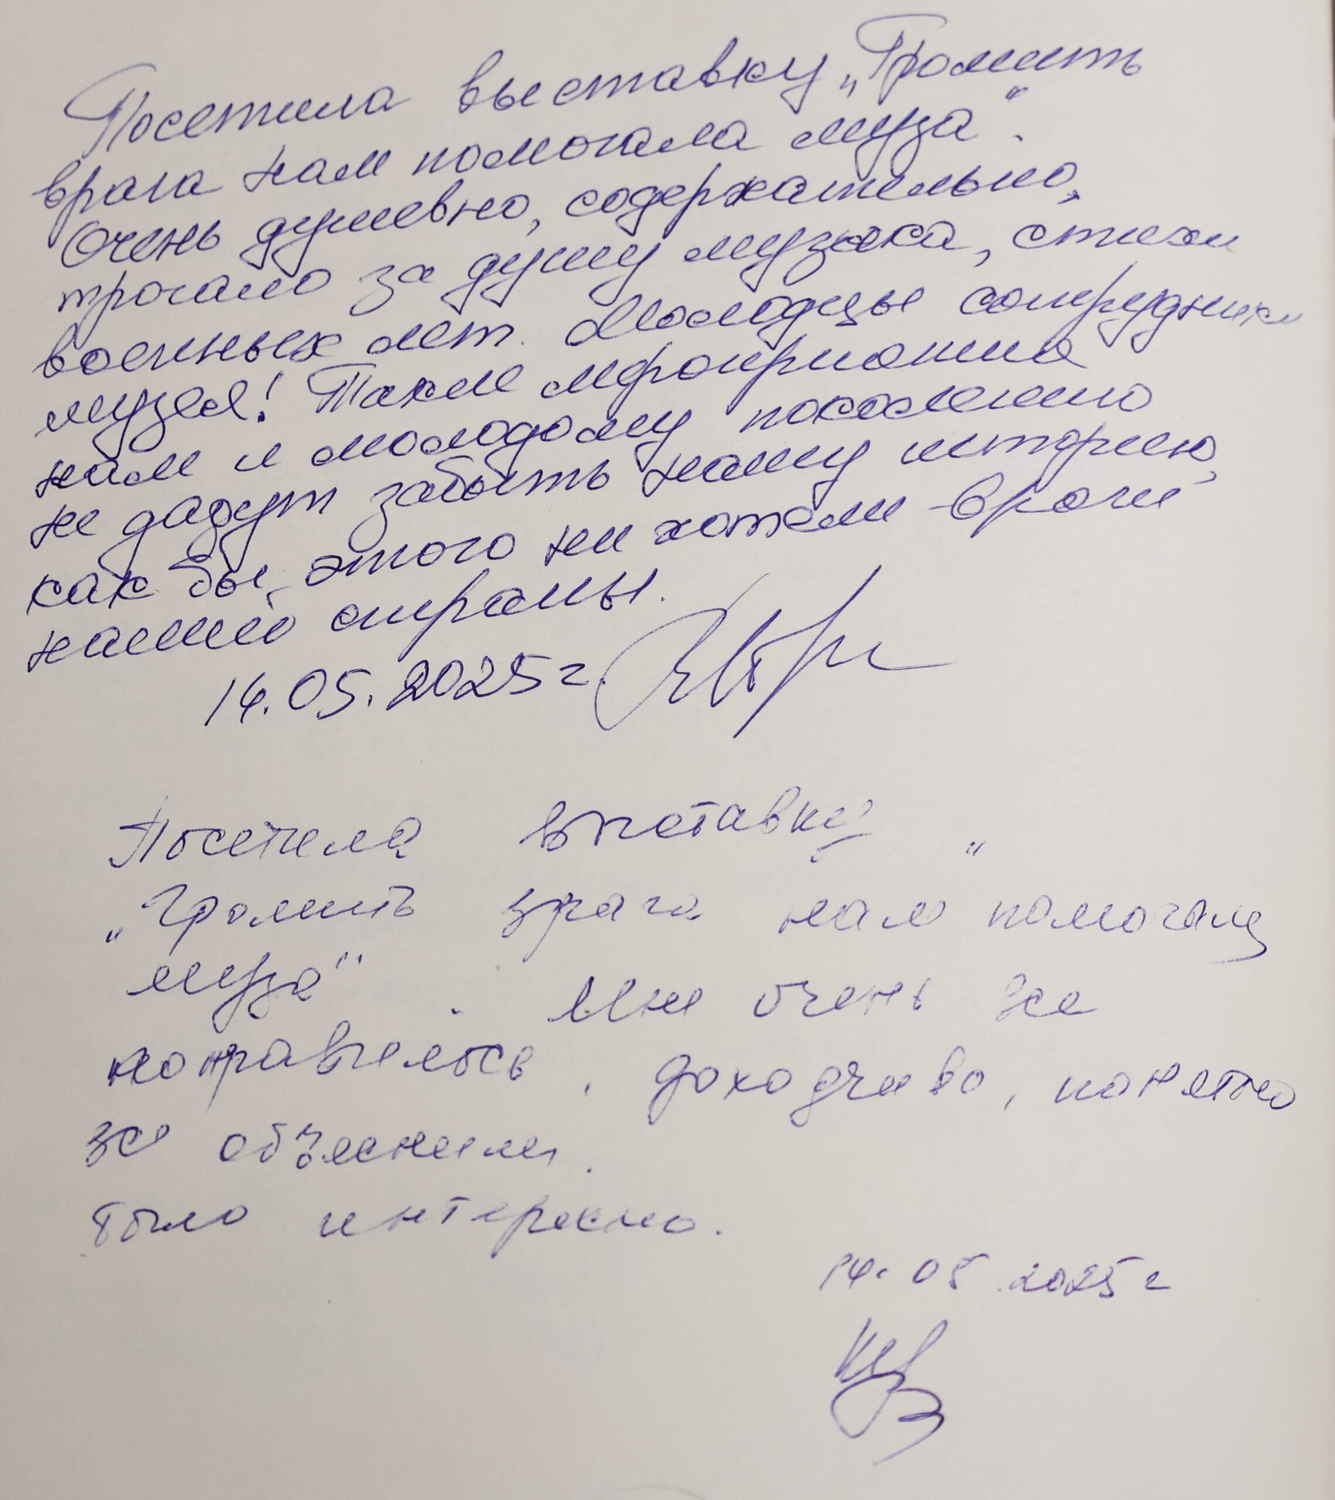 Посетила выставку „Громить
врага нам помогала муза“.
Очень душевно, содержательно,
трогало за душу музыка, стихи
военных лет. Молодцы сотрудники
музея! Такие мероприятия
нам и молодому поколению
не дадут забыть нашу историю,
как бы этого ни хотели враги
нашей страны.
14.05.2025г.
Посетила выставку
„Громить врага нам помогала
муза“. Мне очень
понравилось, доходчиво, понятно
все объяснили.
Было интересно.
14.05.2025г